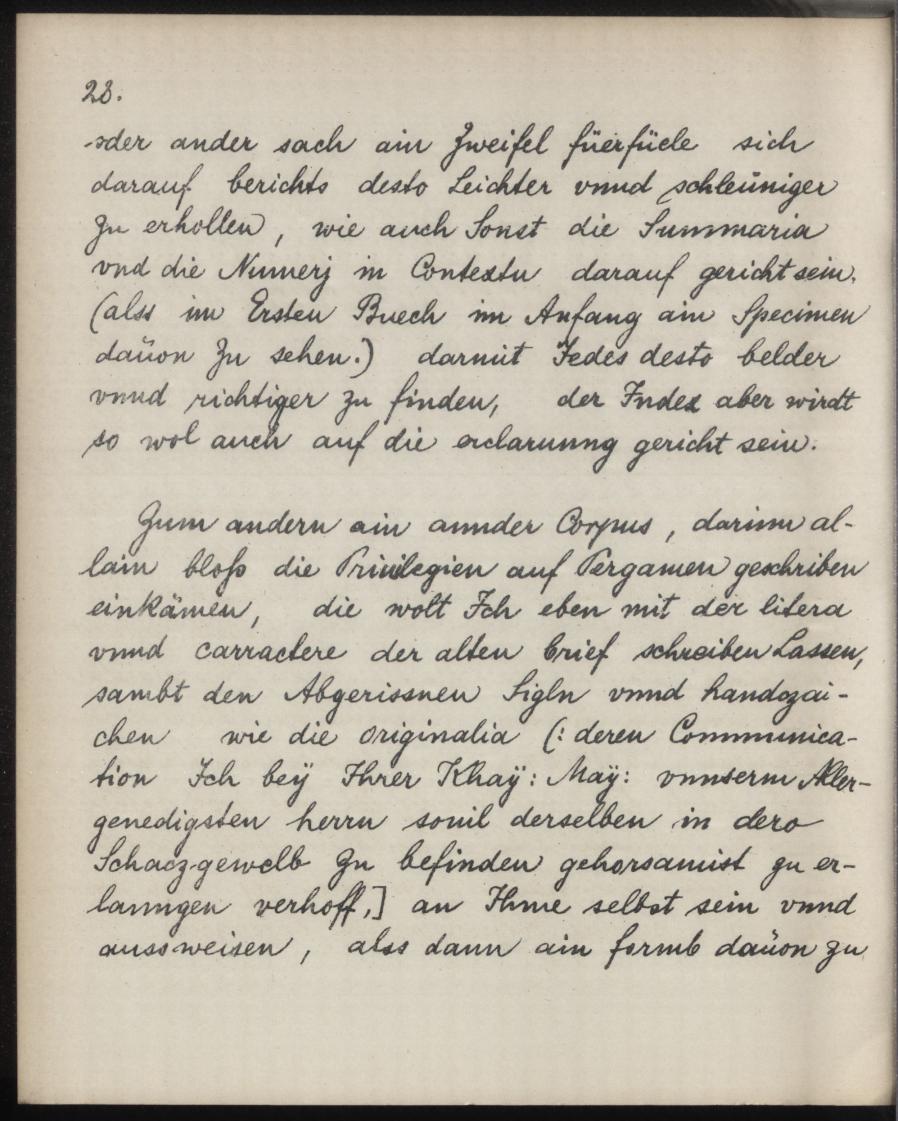 28.
oder ander sach ain Zweifel füerfüele sich
darauf berichts desto Leichter vnnd schleüniger
Zu erhollen, wie auch Sonst die Summaria
vnd die Numerj in Contextu darauf gericht sein.
(alss im Ersten Buech im Anfang ain Specimen
daüon Zu sehen.) darmit Jedes desto belder
vnnd richtiger zu finden, der Index aber wirdt
so wol auch auf die erclarunng gericht sein.
Zum andern ain annder Corpus, darinn al-
lain bloß die Priuilegien auf Pergamen geschriben
einkämen, die wolt Ich eben mit der litera
vnnd carractere der alten brief schreiben Lassen,
sambt den Abgerissnen Sigln vnnd handzai-
chen wie die originalia (: deren Communica-
tion Ich beÿ Ihrer Khaÿ: Maÿ: vnnserm Aller-
genedigsten herrn souil derselben in dero
Schacz-gewelb Zu befinden gehorsamist zu er-
lanngen verhoff,] an Ihme selbst sein vnnd
aussweisen, alss dann ain formb daüon zu